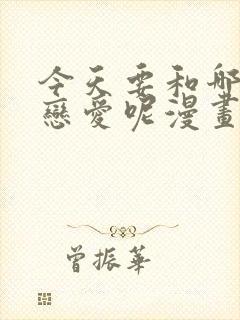 今天要和那
戀愛呢漫畫
曾振華